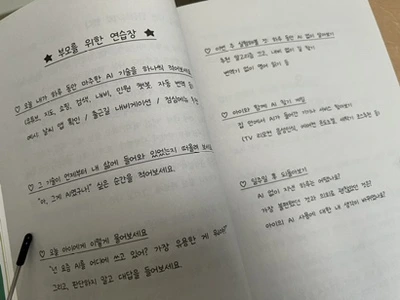 ★ 부모를 위한 연습장 ★
♡ 오늘 내가 하루 동안 마주한 AI 기술을 하나씩 적어보세요.
지도, 쇼핑, 검색, 내비, 민원 챗봇, 자동 번역 등
예시: 날씨 앱 확인 / 출근길 내비게이션 / 점심메뉴
♡ 그 기술이 언제부터 내 삶에 들어와 있었는지 떠올려 보세요.
"아, 그게 AI였구나!" 싶은 순간을 적어보세요.
♡ 오늘 아이에게 이렇게 물어보세요.
"넌 오늘 AI를 어디에 쓰고 있어? 가장 유용한 게 뭐야?"
그리고, 판단하지 말고 대답을 들어보세요.
♡ 이번 주 실험해볼 것: 하루 동안 AI 없이 살아보기
추천 알고리즘 끄고, 내비 없이 길 찾기
번역기 없이 영어 읽기 등
♡ 아이와 함께 AI 찾기 게임
집 안에서 AI가 들어간 기기나 서비스 찾아보기
(TV 리모컨 음성인식, 에어컨 온도조절, 세탁기 코스추천 등)
♡ 일주일 후 되돌아보기
AI 없이 지낸 하루는 어땠나요?
가장 불편했던 것과 의외로 괜찮았던 것은?
아이의 AI 사용에 대한 내 생각이 바뀌었나요?